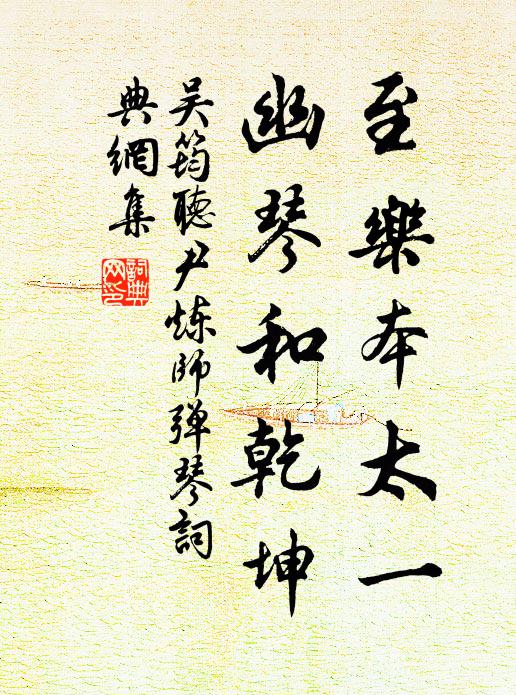 至樂本太一
幽琴和乾坤
吴筠聽尹炼師弹琴詞
典網集
詞典网印